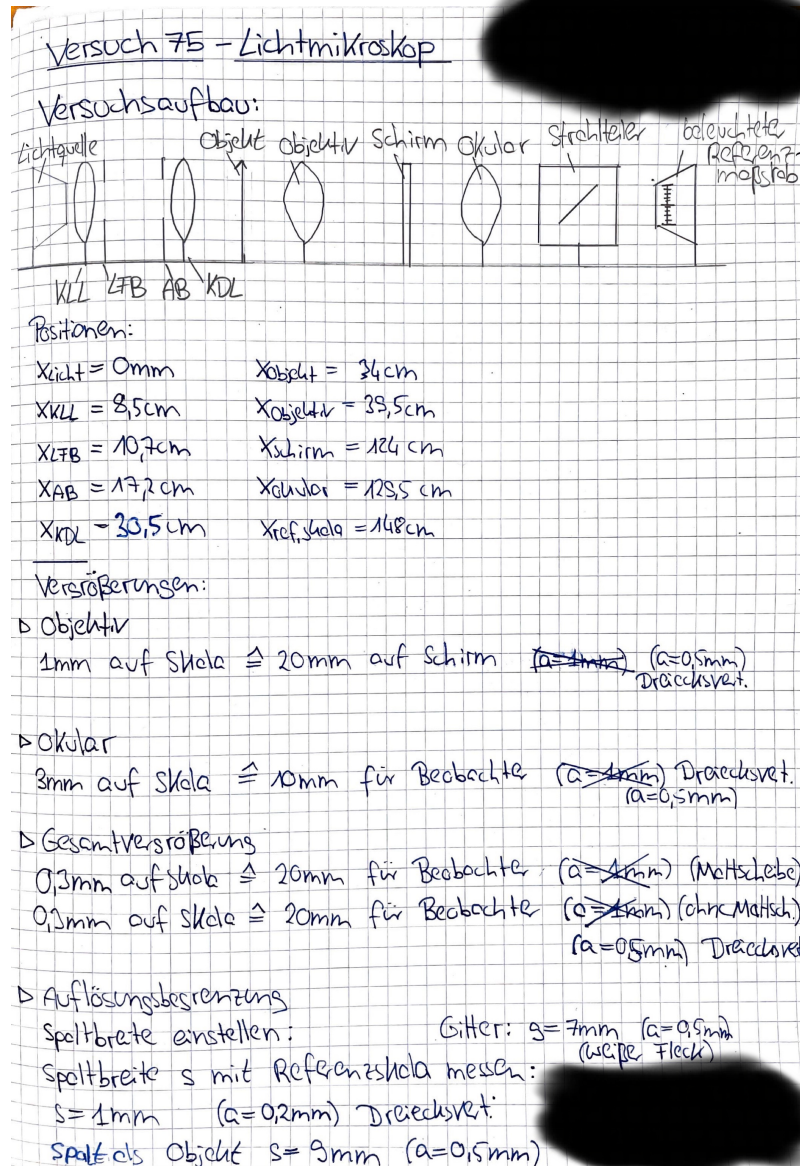 Versuch 75 – Lichtmikroskop
Versuchsaufbau:
Lichtquelle Objekt Objektiv Schirm Okular Strahlteiler beleuchteter Referenz-
maßstab
KLL LFB AB KDL
Positionen:
XLicht = 0mm XObjekt = 34cm
XKLL = 8,5cm XObjektiv = 39,5cm
XLFB = 10,7cm XSchirm = 124 cm
XAB = 17,2cm XOkular = 129,5 cm
XKDL = 30,5cm XRef,skala = 148cm
Vergrößerungen:
▷ Objektiv
1mm auf Skala ≙ 20mm auf Schirm (a=1mm) (a=0,5mm)
Dreiecksvert.
▷ Okular
3mm auf Skala ≙ 10mm für Beobachter (a=1mm) Dreiecksvert.
(a=0,5mm)
▷ Gesamtvergrößerung
0,3mm auf Skala ≙ 20mm für Beobachter (a=1mm) (Mattscheibe)
0,3mm auf Skala ≙ 20mm für Beobachter (a=1mm) (ohne Mattsch.)
(a=0,5mm) Dreiecksvert
▷ Auflösungsbegrenzung
Spaltbreite einstellen: Gitter: g=7mm (a=0,5mm)
(weißer Fleck)
Spaltbreite s mit Referenzskala messen:
s=1mm (a=0,2mm) Dreiecksvert.
Spalt als Objekt s= 9mm (a=0,5mm)